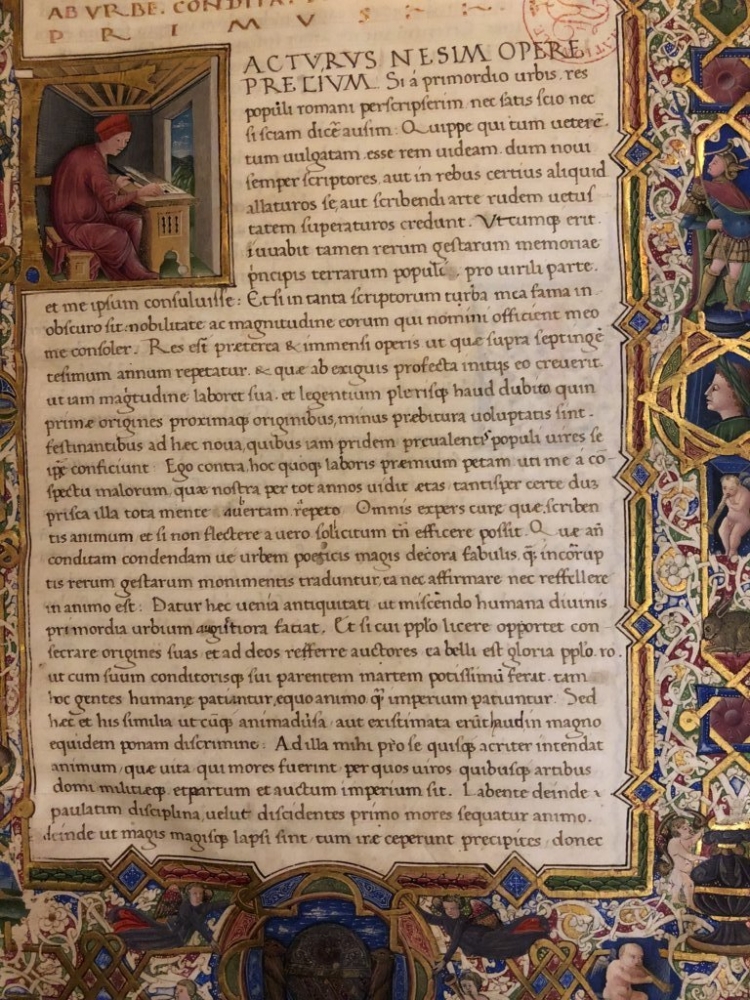 AB VRBE. CONDITA.
P R I M V S
ACTVRVS NE SIM OPERE
PRETIVM. Si á primordio urbis. res
populi romani perscripserim nec satis scio nec
si sciam dicē ausim: Quippe qui tum ueterē.
tum uulgatam esse rem uideam. dum noui
semper scriptores, aut in rebus certius aliquid
allaturos se, aut scribendi arte rudem uetus
tatem superaturos credunt. Vtcumqꝫ erit.
iuuabit tamen rerum gestarum memoriae
pncipis terrarum populi pro uirili parte.
et me ipsum consuluisse: Et si in tanta scriptorum turba mea fama in
obscuro sit nobilitate ac magnitudine eorum qui nomini officient meo
me consoler. Res est præterea & immensi operis ut quæ supra septinge
tesimum annum repetatur. & quæ ab exiguis profecta initiis eo creuerit.
ut iam magitudine laboret sua. et legentium plerisqꝫ haud dubito quin
primæ origines proximaqꝫ originibus, minus præbitura uoluptatis sint.
festinantibus ad hæc noua, quibus iam pridem preualentis populi uires se
ipē conficiunt. Ego contra, hoc quoqꝫ laboris præmium petam uti me á co
spectu malorum, quæ nostra per tot annos uidit ætas, tantisper certe duꝫ
prisca illa tota mente auertam. repeto Omnis expers curæ quæ. scriben
tis animum et si non flectere a uero solicitum tn̄ efficere possit. Quæ añ
conditam condendam ue urbem poeticis magis decora fabulis. q̄ incorup
tis rerum gestarum monimentis traduntur, ea nec affirmare nec reffellere
in animo est: Datur hec uenia antiquitati ut miscendo humana diuinis
primordia urbium augustiora faciat. Et si cui pplo licere opportet con
secrare origines suas et ad deos refferre auctores ea belli est gloria pplo. ro.
ut cum suum conditorisqꝫ sui parentem martem potissimū ferat. tam
hoc gentes humane patiantur, equo animo. q̄ imperium patiuntur. Sed
hec et his similia ut cūqꝫ animaduīsa, aut existimata erūt haud in magno
equidem ponam discrimine: Ad illa mihi pro se quisqꝫ acriter intendat
animum, quæ uita, qui mores fuerint, per quos uiros quibusqꝫ artibus
domi militieqꝫ et partum et auctum imperium sit. Labente deinde
paulatim disciplina, uelut discidentes primo mores sequatur animo.
deinde ut magis magisqꝫ lapsi sint, tum iræ ceperunt precipites, donec